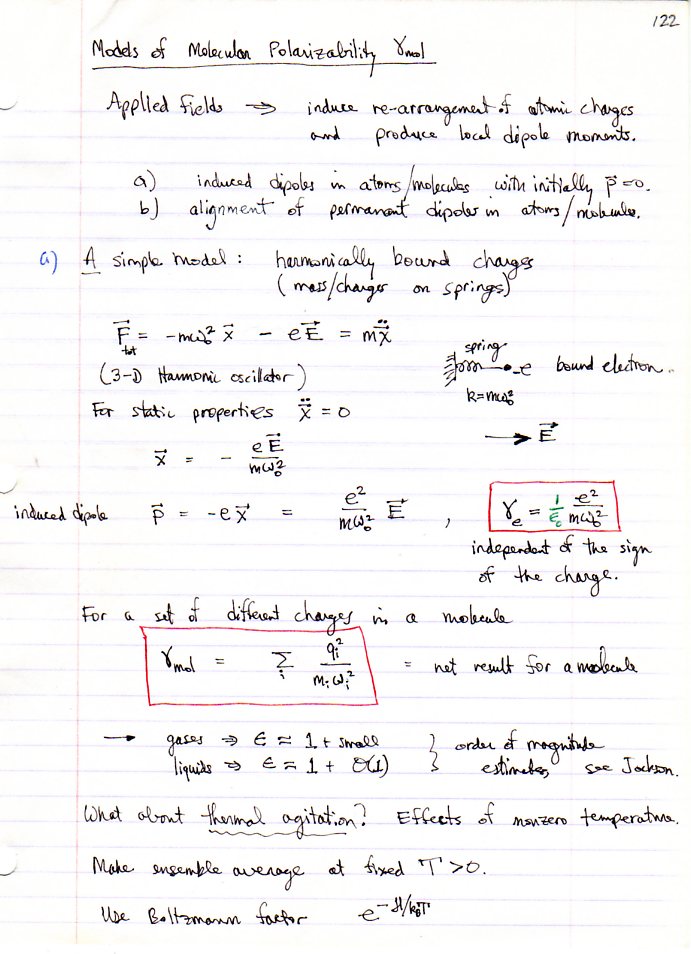 122
Models of Molecular Polarizability γmol
Applied fields → induce re-arrangement of atomic charges
and produce local dipole moments.
a) induced dipoles in atoms/molecules with initially p⃗=0.
b) alignment of permanant dipoles in atoms/molecules.
a) A simple model: harmonically bound charges
(mass/charges on springs)
F⃗tot = -mω₀² x⃗ - eE⃗ = mẍ⃗
(3-D Harmonic oscillator)
spring
-e bound electron.
k=mω₀²
For static properties ẍ⃗ = 0
→ E⃗
x⃗ = - eE⃗/mω₀²
induced dipole p⃗ = -ex⃗ = e²/mω₀² E⃗ , γe = 1/ε₀ e²/mω₀²
independent of the sign
of the charge.
For a set of different charges in a molecule
γmol = Σi qi²/miωi² = net result for a molecule
→ gases ⇒ ε ≈ 1 + small } order of magnitude
liquids ⇒ ε ≈ 1 + O(1) } estimates, see Jackson.
What about thermal agitation? Effects of nonzero temperature.
Make ensemble average at fixed T>0.
Use Boltzmann factor e^-H/kBT